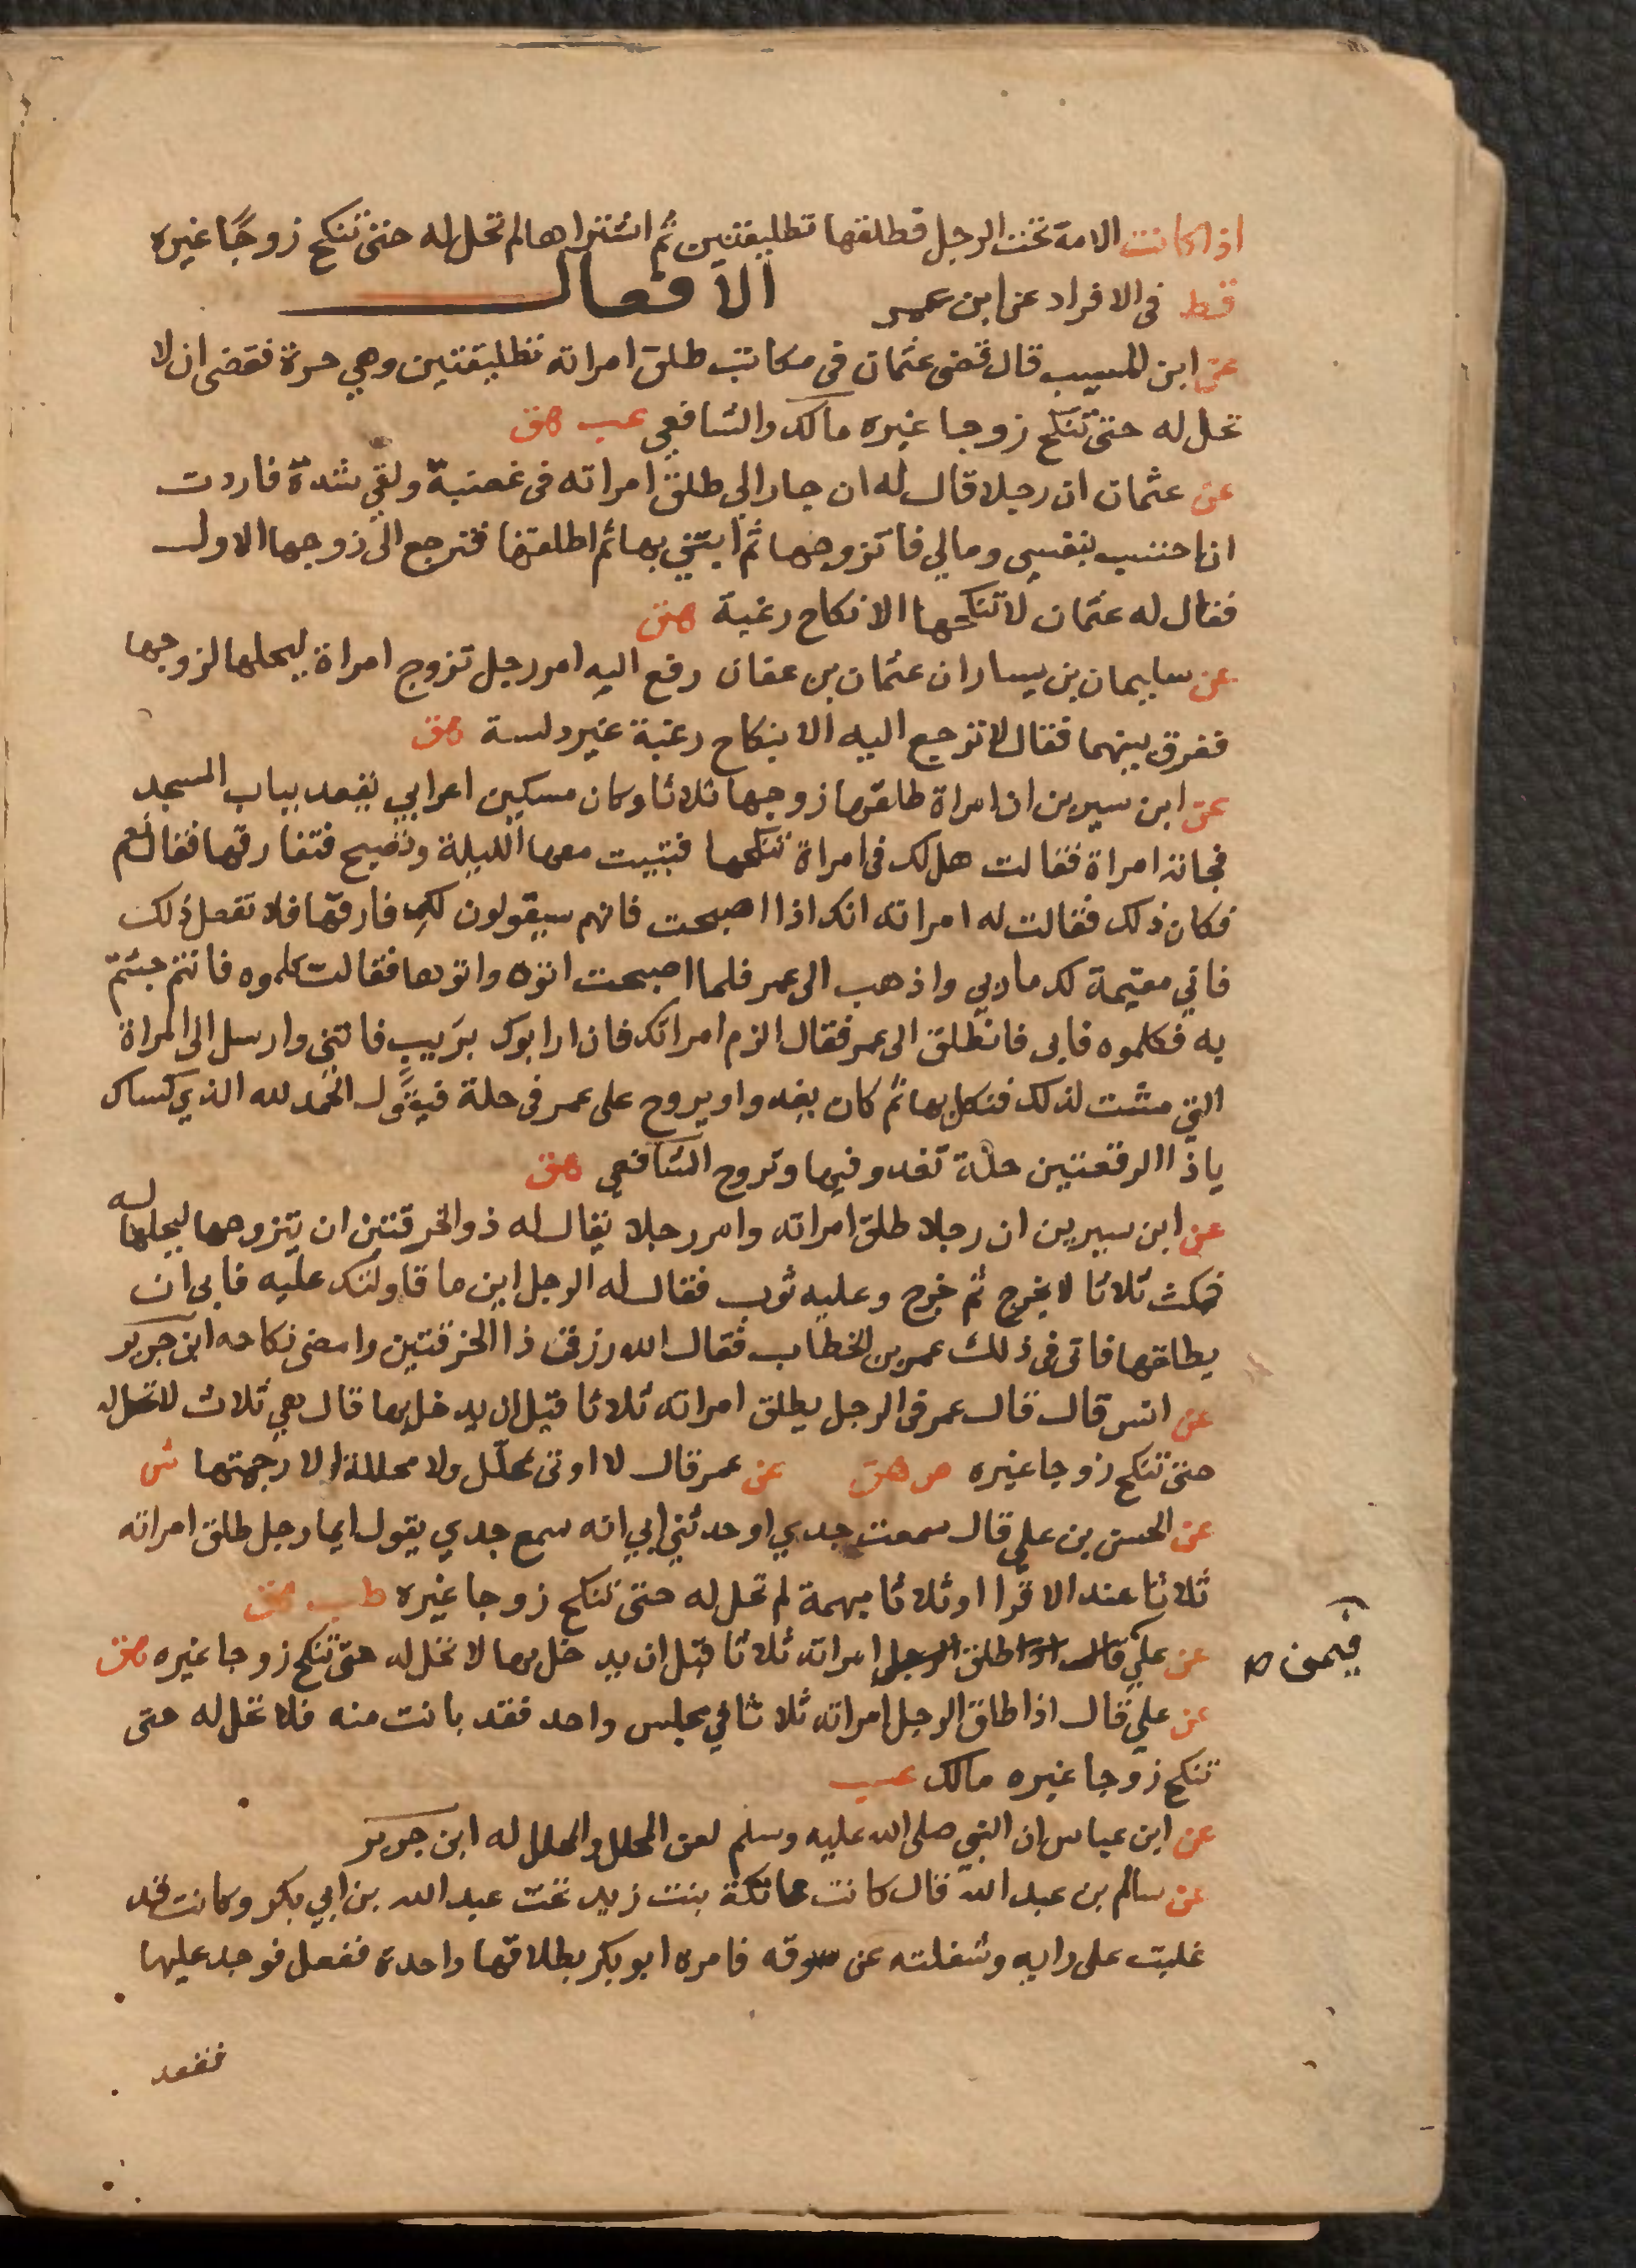 اذا كانت الامة تحت الرجل فطلقها تطليقتين ثم اشتراها لم تحل له حتى تنكح زوجًا غيره
قط في الافراد عن ابن عمر الافعال
عن ابن المسيب قال قضى عثمان في مكاتب طلق امراته تطليقتين وهي حرة فقضى ان لا
تحل له حتى تنكح زوجا غيره مالك والشافعي عب هق
عن عثمان ان رجلا قال له ان جارا لي طلق امراته في غضبة ولقي شدة فاردت
ان احتسب بنفسي ومالي فاتزوجها ثم ابتني بها ثم اطلقها فترجع الى زوجها الاول
فقال له عثمان لا تنكحها الا نكاح رغبة هق
عن سليمان بن يسار ان عثمان بن عفان رفع اليه امر رجل تزوج امراة ليحلها لزوجها
ففرق بينهما فقال لا ترجع اليه الا بنكاح رغبة غير دلسة هق
عن ابن سيرين ان امراة طلقها زوجها ثلاثا وكان مسكين اعرابي يقعد بباب المسجد
فجاته امراة فقالت هل لك في امراة تنكحها فتبيت معها الليلة وتصبح فتفارقها فقال نعم
فكان ذلك فقالت له امراته انك اذا اصبحت فانهم سيقولون لك فارقها فلا تفعل ذلك
فاني مقيمة لك ما دبي واذهب الى عمر فلما اصبحت اتوه واتوها فقالت كلموه فانتم جئتم
به فكلموه فابى فانطلق الى عمر فقال الزم امراتك فان ارابوك بريب فاتني وارسل الى المراة
التي مشت لذلك فنكل بها ثم كان يغدوا ويروح على عمر في حلة فيقول الحمد لله الذي كساك
ياذا الرقعتين حلة تغدو فيها وتروح الشافعي هق
عن ابن سيرين ان رجلا طلق امراته وامر رجلا يقال له ذو الخرقتين ان يتزوجها ليحلها له
فمكث ثلاثا لا يخرج ثم خرج وعليه ثوب فقال له الرجل اين ما قاولتك عليه فابى ان
يطلقها فاتى في ذلك عمر بن الخطاب فقال الله رزق ذا الخرقتين وامضى نكاحه ابن جرير
عن انس قال قال عمر في الرجل يطلق امراته ثلاثا قبل ان يدخل بها قال هي ثلاث لا تحل له
حتى تنكح زوجا غيره ص هق عن عمر قال لا اوتى بمحلل ولا محللة الا رجمتها ش
عن الحسن بن علي قال سمعت جدي او حدثني ابي انه سمع جدي يقول ايما رجل طلق امراته
ثلاثا عند الاقرا او ثلاثا مبهمة لم تحل له حتى تنكح زوجا غيره طب هق
عن علي قال اذا طلق الرجل امراته ثلاثا قبل ان يدخل بها لا تحل له حتى تنكح زوجا غيره هق
فيمن
عن علي قال اذا طلق الرجل امراته ثلاثا في مجلس واحد فقد بانت منه فلا تحل له حتى
تنكح زوجا غيره مالك عب
عن ابن عباس ان النبي صلى الله عليه وسلم لعن المحلل والمحلل له ابن جرير
عن سالم بن عبد الله قال كانت عاتكة بنت زيد تحت عبد الله بن ابي بكر وكانت قد
غلبت على رايه وشغلته عن سوقه فامره ابو بكر بطلاقها واحدة ففعل فوجد عليها
فقعد